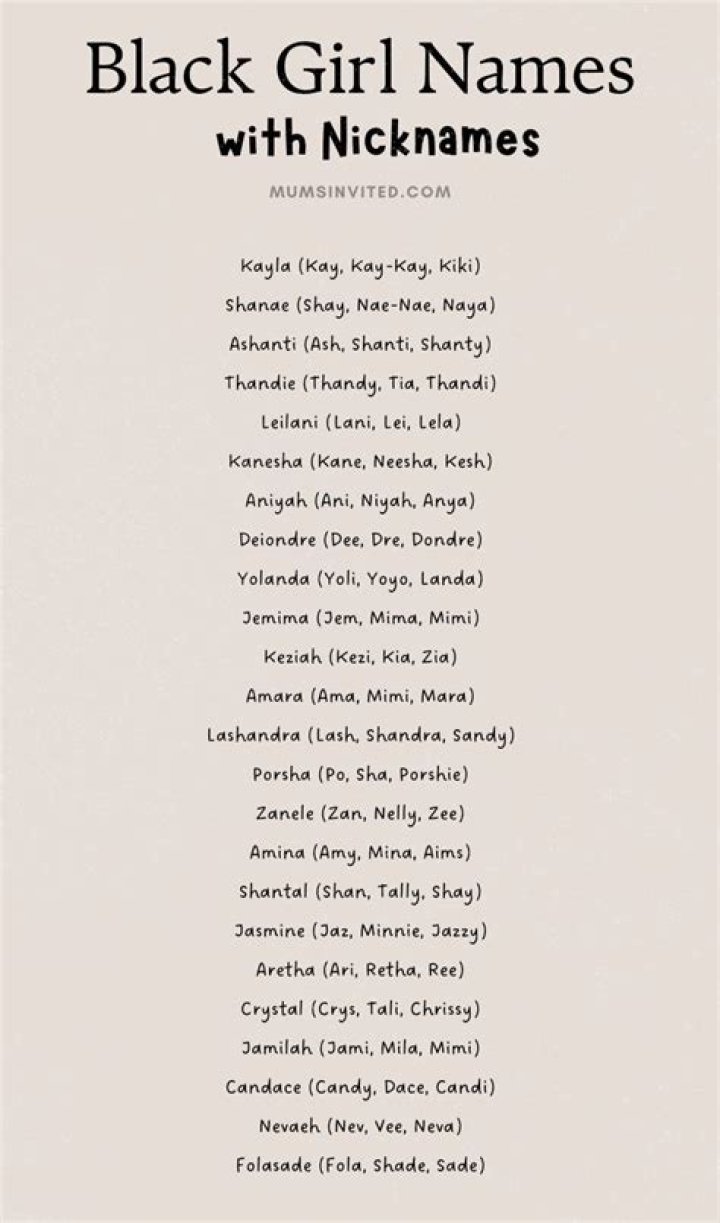 Black Girl Names
with Nicknames
MUMSINVITED.COM
Kayla (Kay, Kay-Kay, Kiki)
Shanae (Shay, Nae-Nae, Naya)
Ashanti (Ash, Shanti, Shanty)
Thandie (Thandy, Tia, Thandi)
Leilani (Lani, Lei, Lela)
Kanesha (Kane, Neesha, Kesh)
Aniyah (Ani, Niyah, Anya)
Deiondre (Dee, Dre, Dondre)
Yolanda (Yoli, Yoyo, Landa)
Jemima (Jem, Mima, Mimi)
Keziah (Kezi, Kia, Zia)
Amara (Ama, Mimi, Mara)
Lashandra (Lash, Shandra, Sandy)
Porsha (Po, Sha, Porshie)
Zanele (Zan, Nelly, Zee)
Amina (Amy, Mina, Aims)
Shantal (Shan, Tally, Shay)
Jasmine (Jaz, Minnie, Jazzy)
Aretha (Ari, Retha, Ree)
Crystal (Crys, Tali, Chrissy)
Jamilah (Jami, Mila, Mimi)
Candace (Candy, Dace, Candi)
Nevaeh (Nev, Vee, Neva)
Folasade (Fola, Shade, Sade)